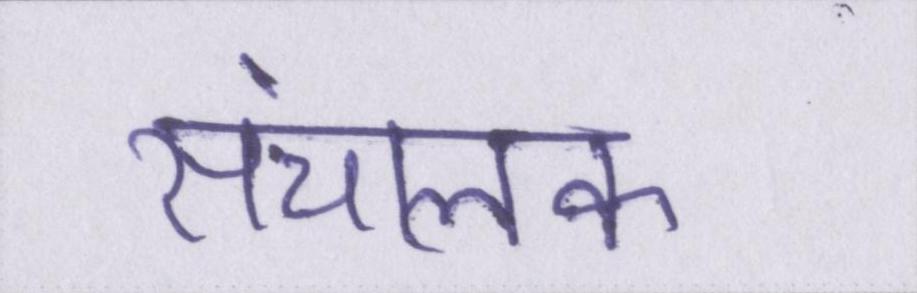 संचालक